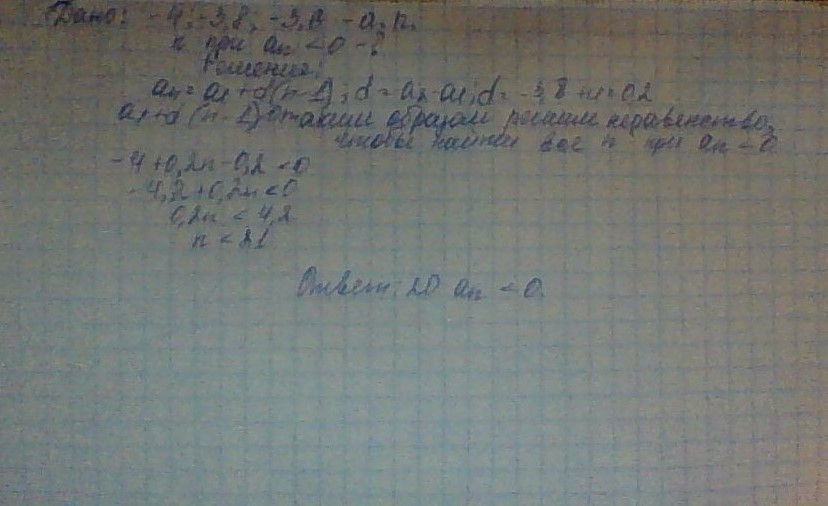 Дано: -4; -3,8; -3,6 - а. п.
n при an < 0 - ?
Решение:
an = a1 + d(n-1); d = a2 - a1; d = -3,8 + 4 = 0,2
a1 + d(n-1) < 0 таким образом решим неравенство,
чтобы найти все n при an < 0
-4 + 0,2n - 0,2 < 0
-4,2 + 0,2n < 0
0,2n < 4,2
n < 21
Ответ: 20 an < 0.